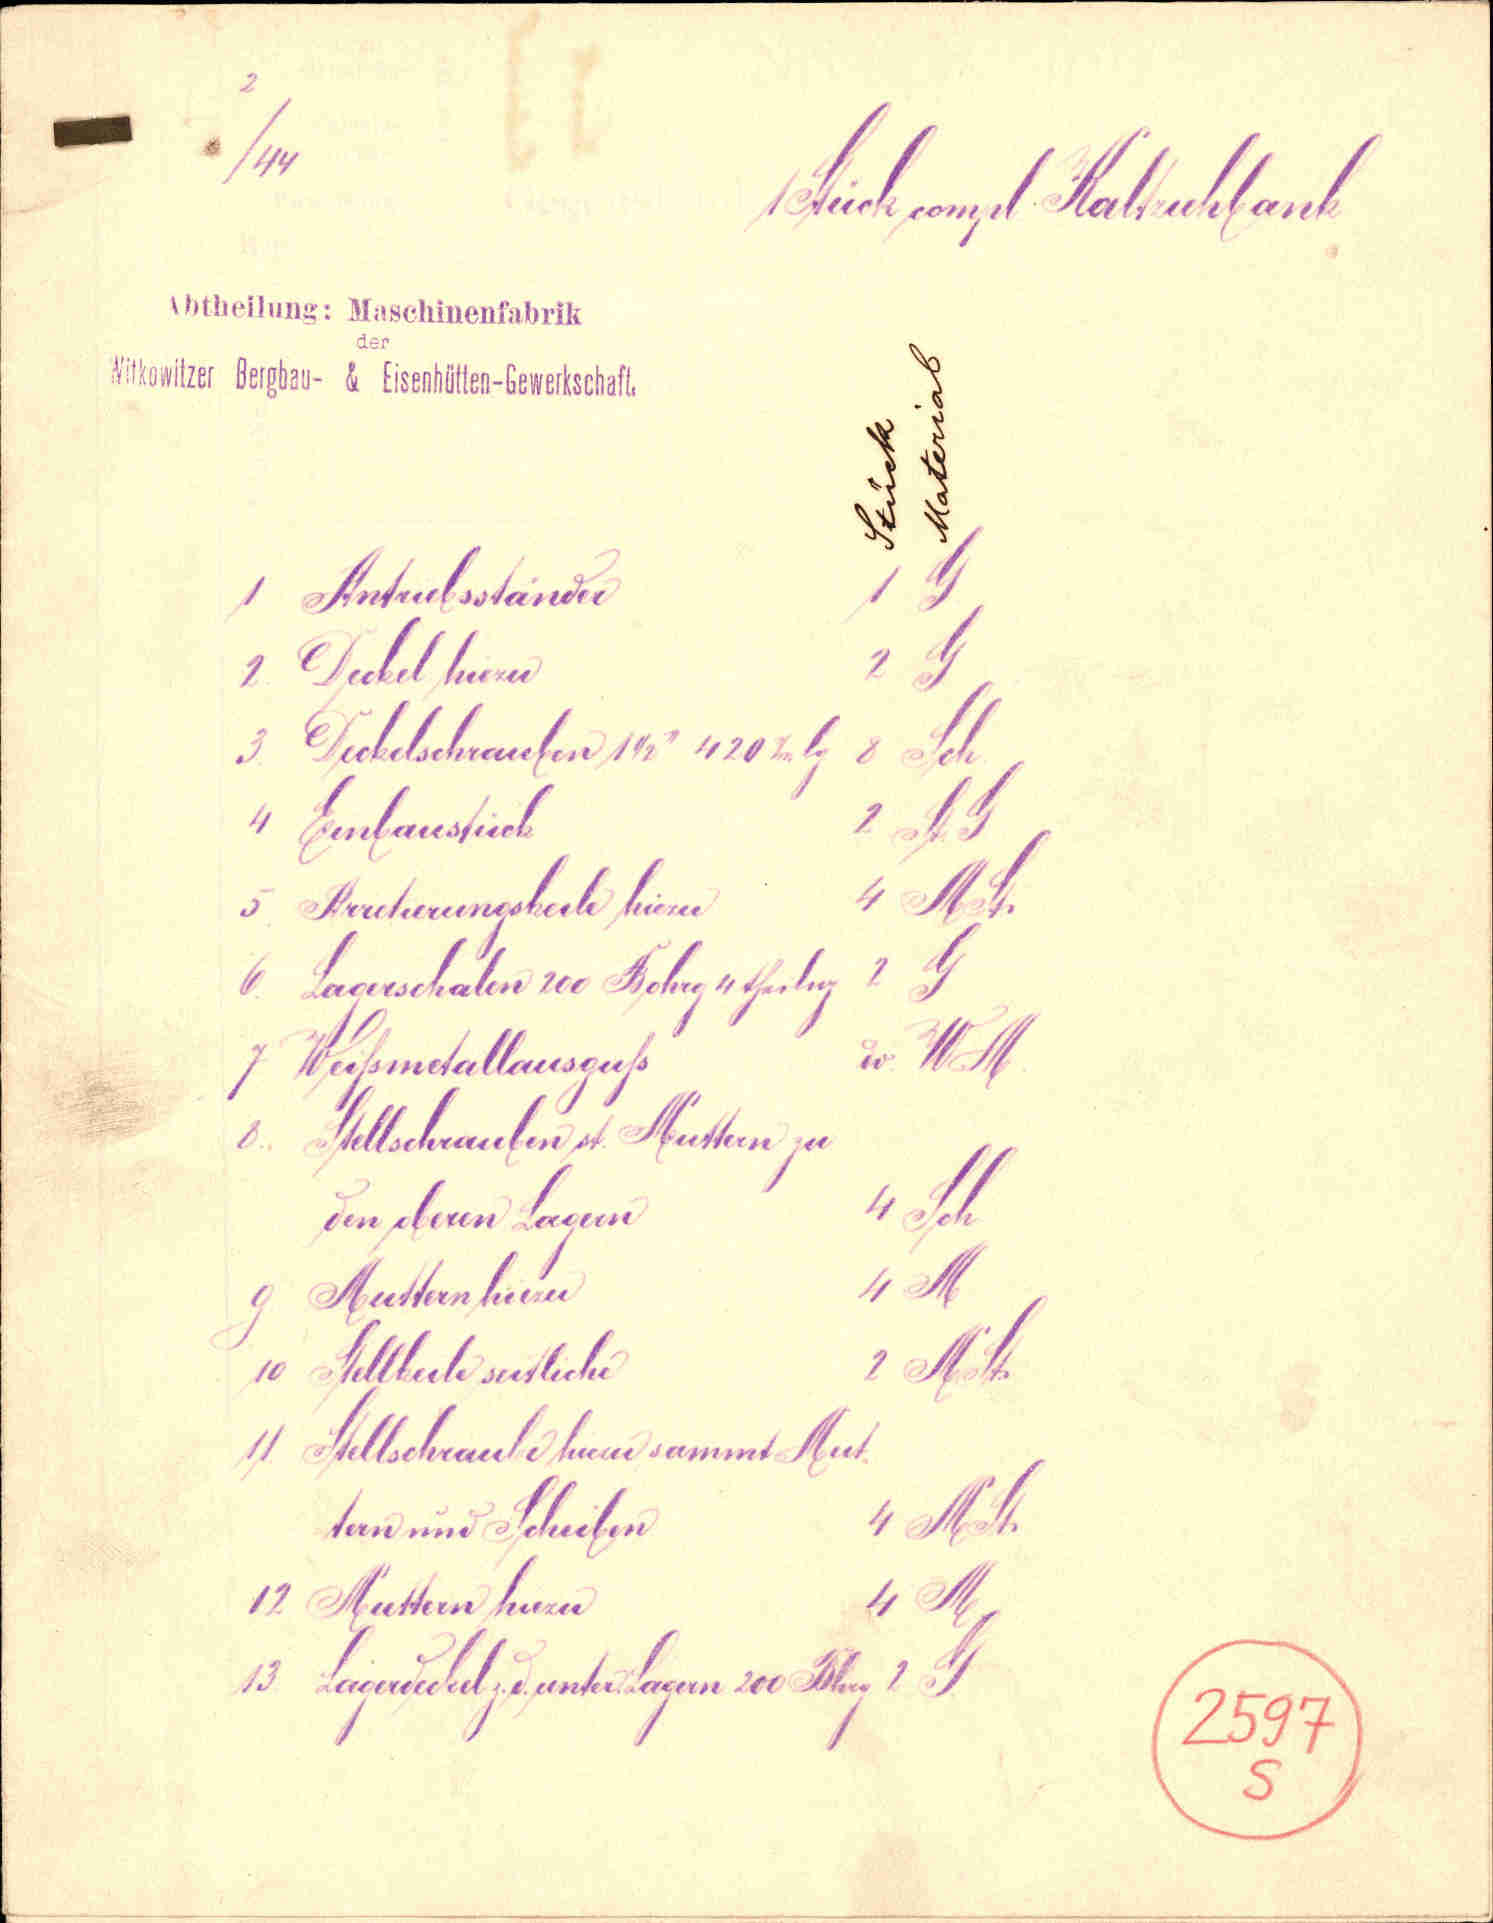 2
/44
1 Stück compl. Kaltziehbank
Abtheilung: Maschinenfabrik
der
Witkowitzer Bergbau- & Eisenhütten-Gewerkschaft.
Stück Material
1 Antriebsständer 1 G
2. Deckel hiezu 2 G
3. Deckelschrauben 1 1/2" 420 m/m lg 8 Sch.
4 Einbaustück 2 St. G
5. Arretierungskeile hiezu 4 M St.
6. Lagerschalen 200 Bohrg 4 theilig 2 G
7 Weißmetallausguß do. W M.
8. Stellschrauben st. Muttern zu
den oberen Lagern 4 Sch
9 Muttern hiezu 4 M
10 Stellkeile seitliche 2 M St.
11. Stellschraube hiezu sammt Mut-
tern und Scheiben 4 M St.
12 Muttern hiezu 4 M
13. Lagerdeckel z. d. unter. Lagern 200 Bhrg 2 G
2597
S